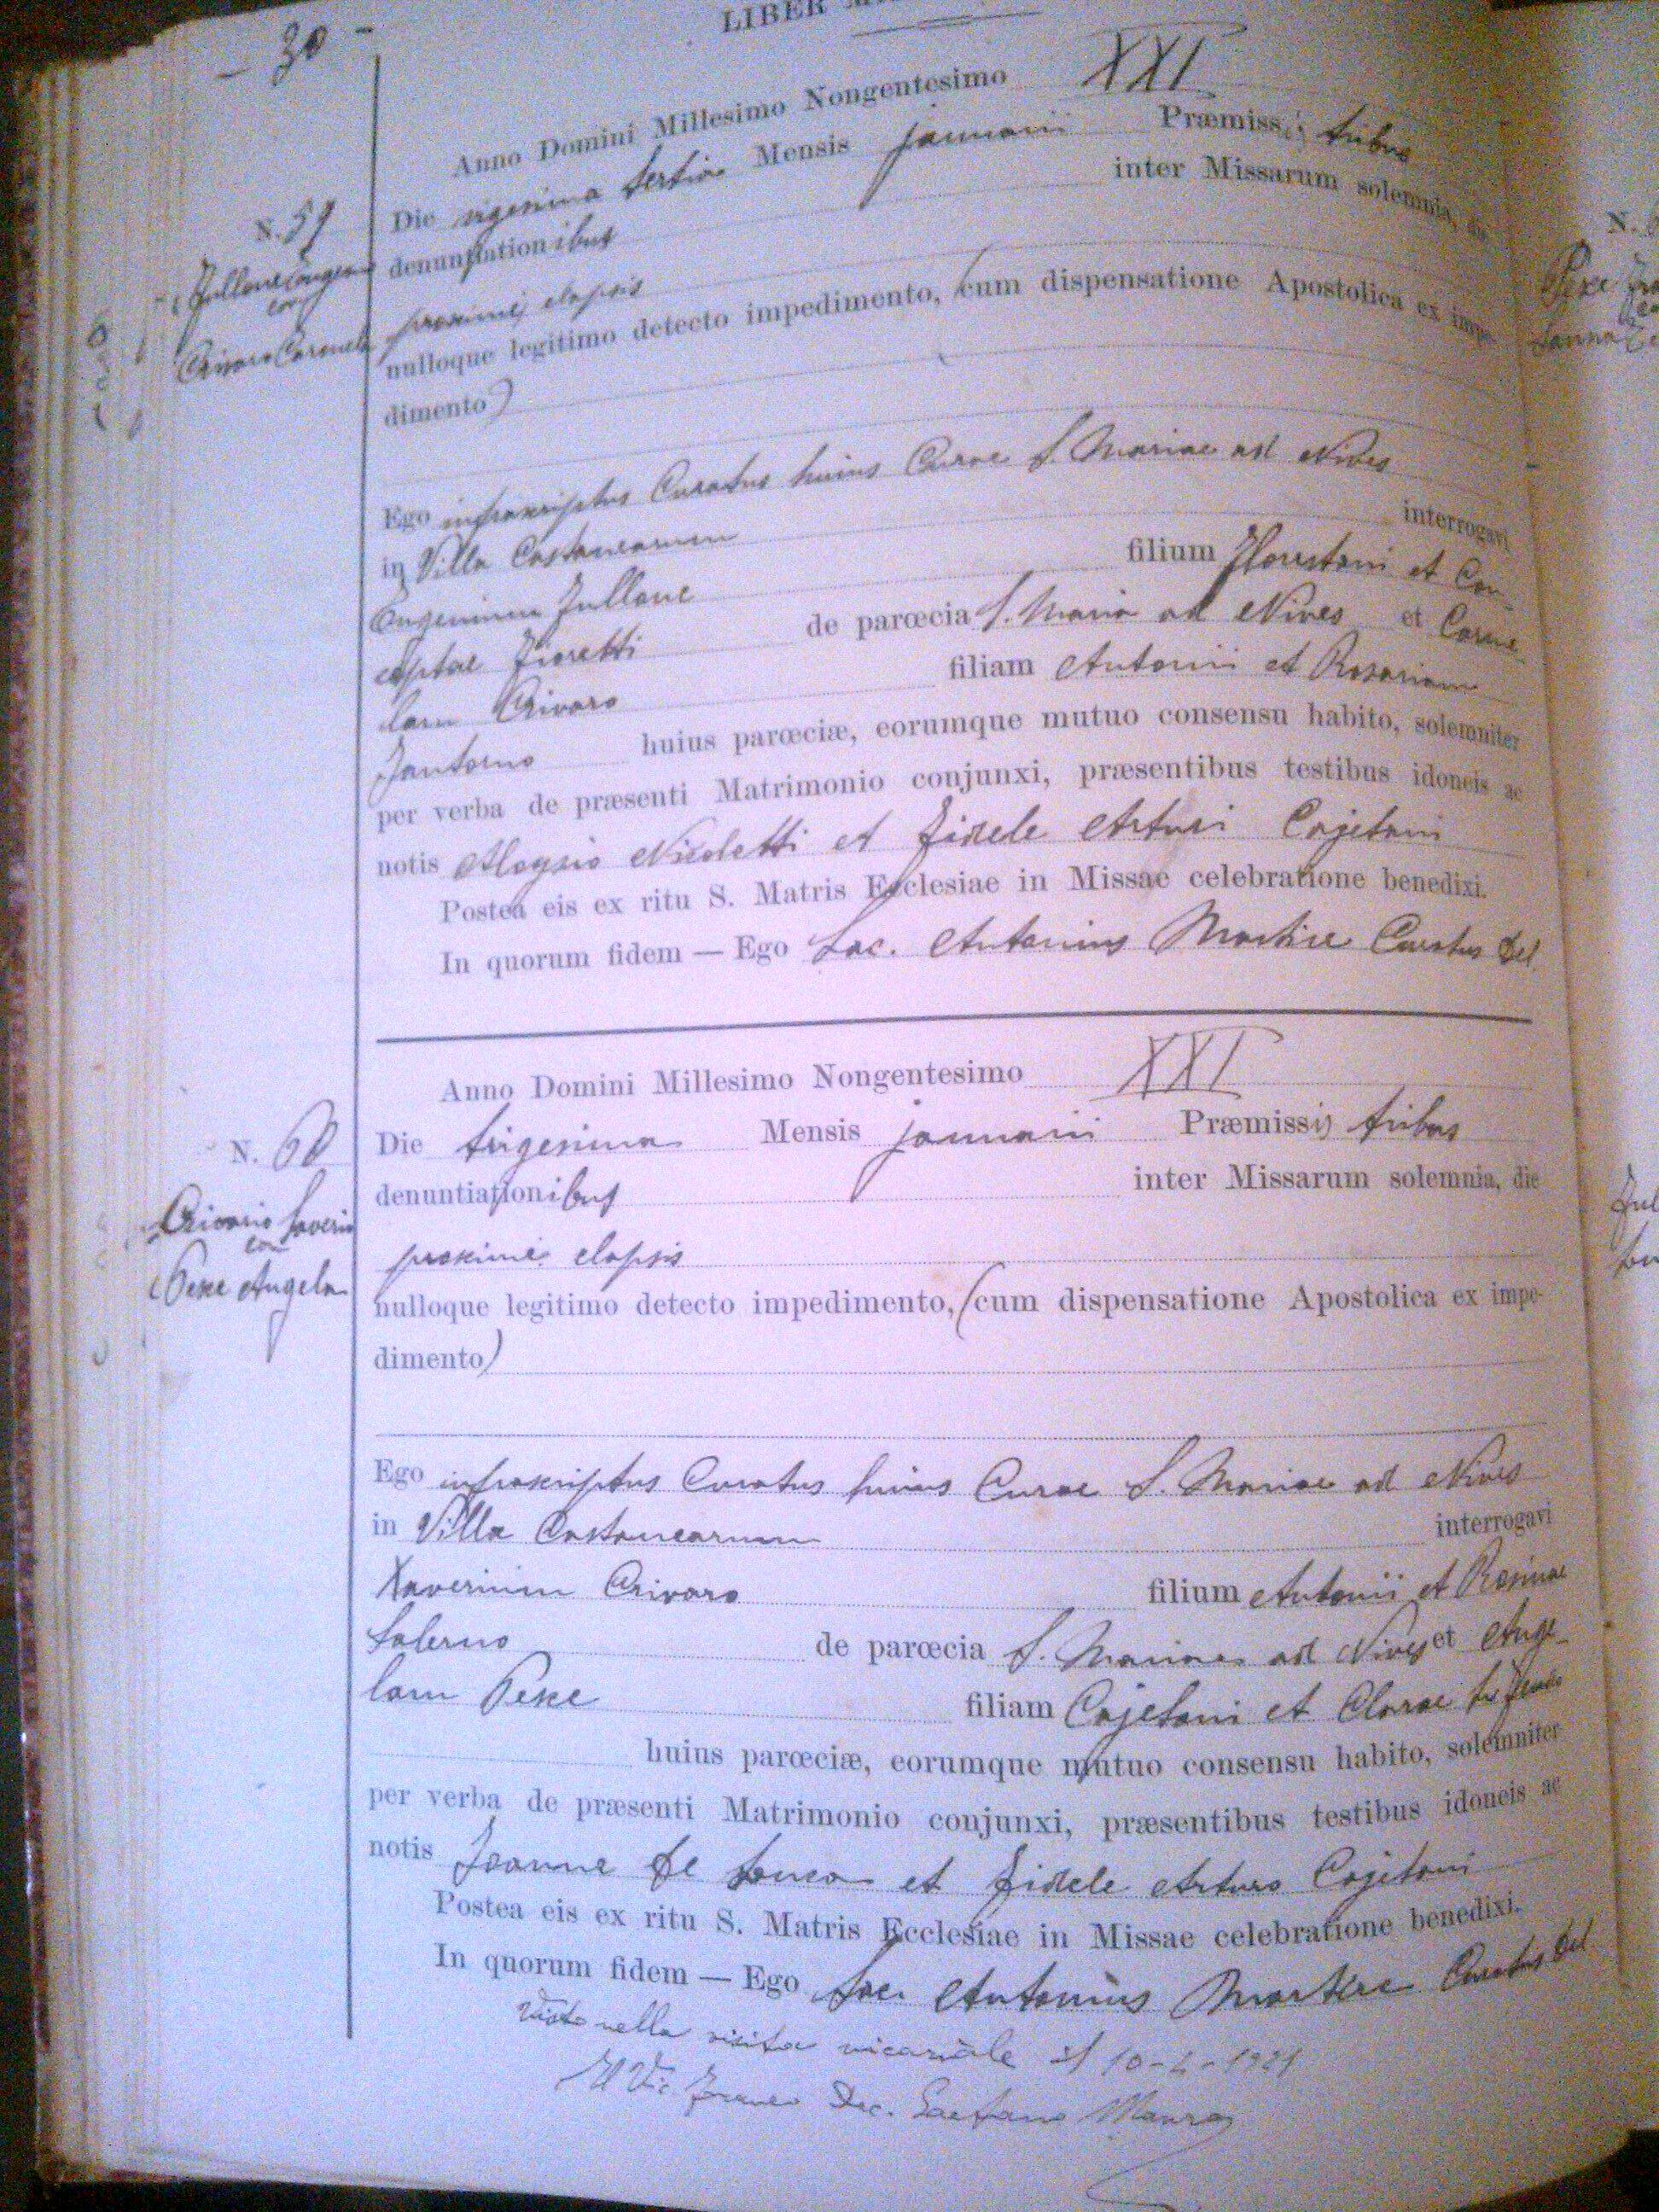 - 30 -
LIBER
Anno Domini Millesimo Nongentesimo XXI
N. 59
Die vigesima tertia Mensis januarii Præmissis tribus
denuntiationibus inter Missarum solemnia, die
Fullone Eugenio
con
Crivaro Carmela
proxime elapsis
nulloque legitimo detecto impedimento, (cum dispensatione Apostolica ex impe-
dimento)
Ego infrascriptus Curatus huius Curae S. Mariae ad Nives
in Villa Castanearum interrogavi
Eugenium Fullone filium Florestani et Con-
ceptae Fioretti de parœcia S. Maria ad Nives et Carme-
lam Crivaro filiam Antonii et Rosariam
Santorno huius parœciæ, eorumque mutuo consensu habito, solemniter
per verba de præsenti Matrimonio conjunxi, præsentibus testibus idoneis ac
notis Aloysio Nicoletti et Fidele Arturi Cajetani
Postea eis ex ritu S. Matris Ecclesiae in Missae celebratione benedixi.
In quorum fidem — Ego Sac. Antonius Martire Curatus Del.
Anno Domini Millesimo Nongentesimo XXI
N. 60
Die trigesima Mensis januarii Præmissis tribus
denuntiationibus inter Missarum solemnia, die
Crivario Saverio
con
Pexe Angela
proxime elapsis
nulloque legitimo detecto impedimento, (cum dispensatione Apostolica ex impe-
dimento)
Ego infrascriptus Curatus huius Curae S. Mariae ad Nives
in Villa Castanearum interrogavi
Xaverium Crivaro filium Antonii et Rosinae
Salerno de parœcia S. Mariae ad Nives et Ange-
lam Pexe filiam Cajetani et Clarae
huius parœciæ, eorumque mutuo consensu habito, solemniter
per verba de præsenti Matrimonio conjunxi, præsentibus testibus idoneis ac
notis Joanne De Luca et Fidele Arturo Cajetani
Postea eis ex ritu S. Matris Ecclesiae in Missae celebratione benedixi.
In quorum fidem — Ego Sac. Antonius Martire Curatus Del
Visto nella visita vicariale 10-2-1921
Il Vic. Dec. Gaetano Mauro